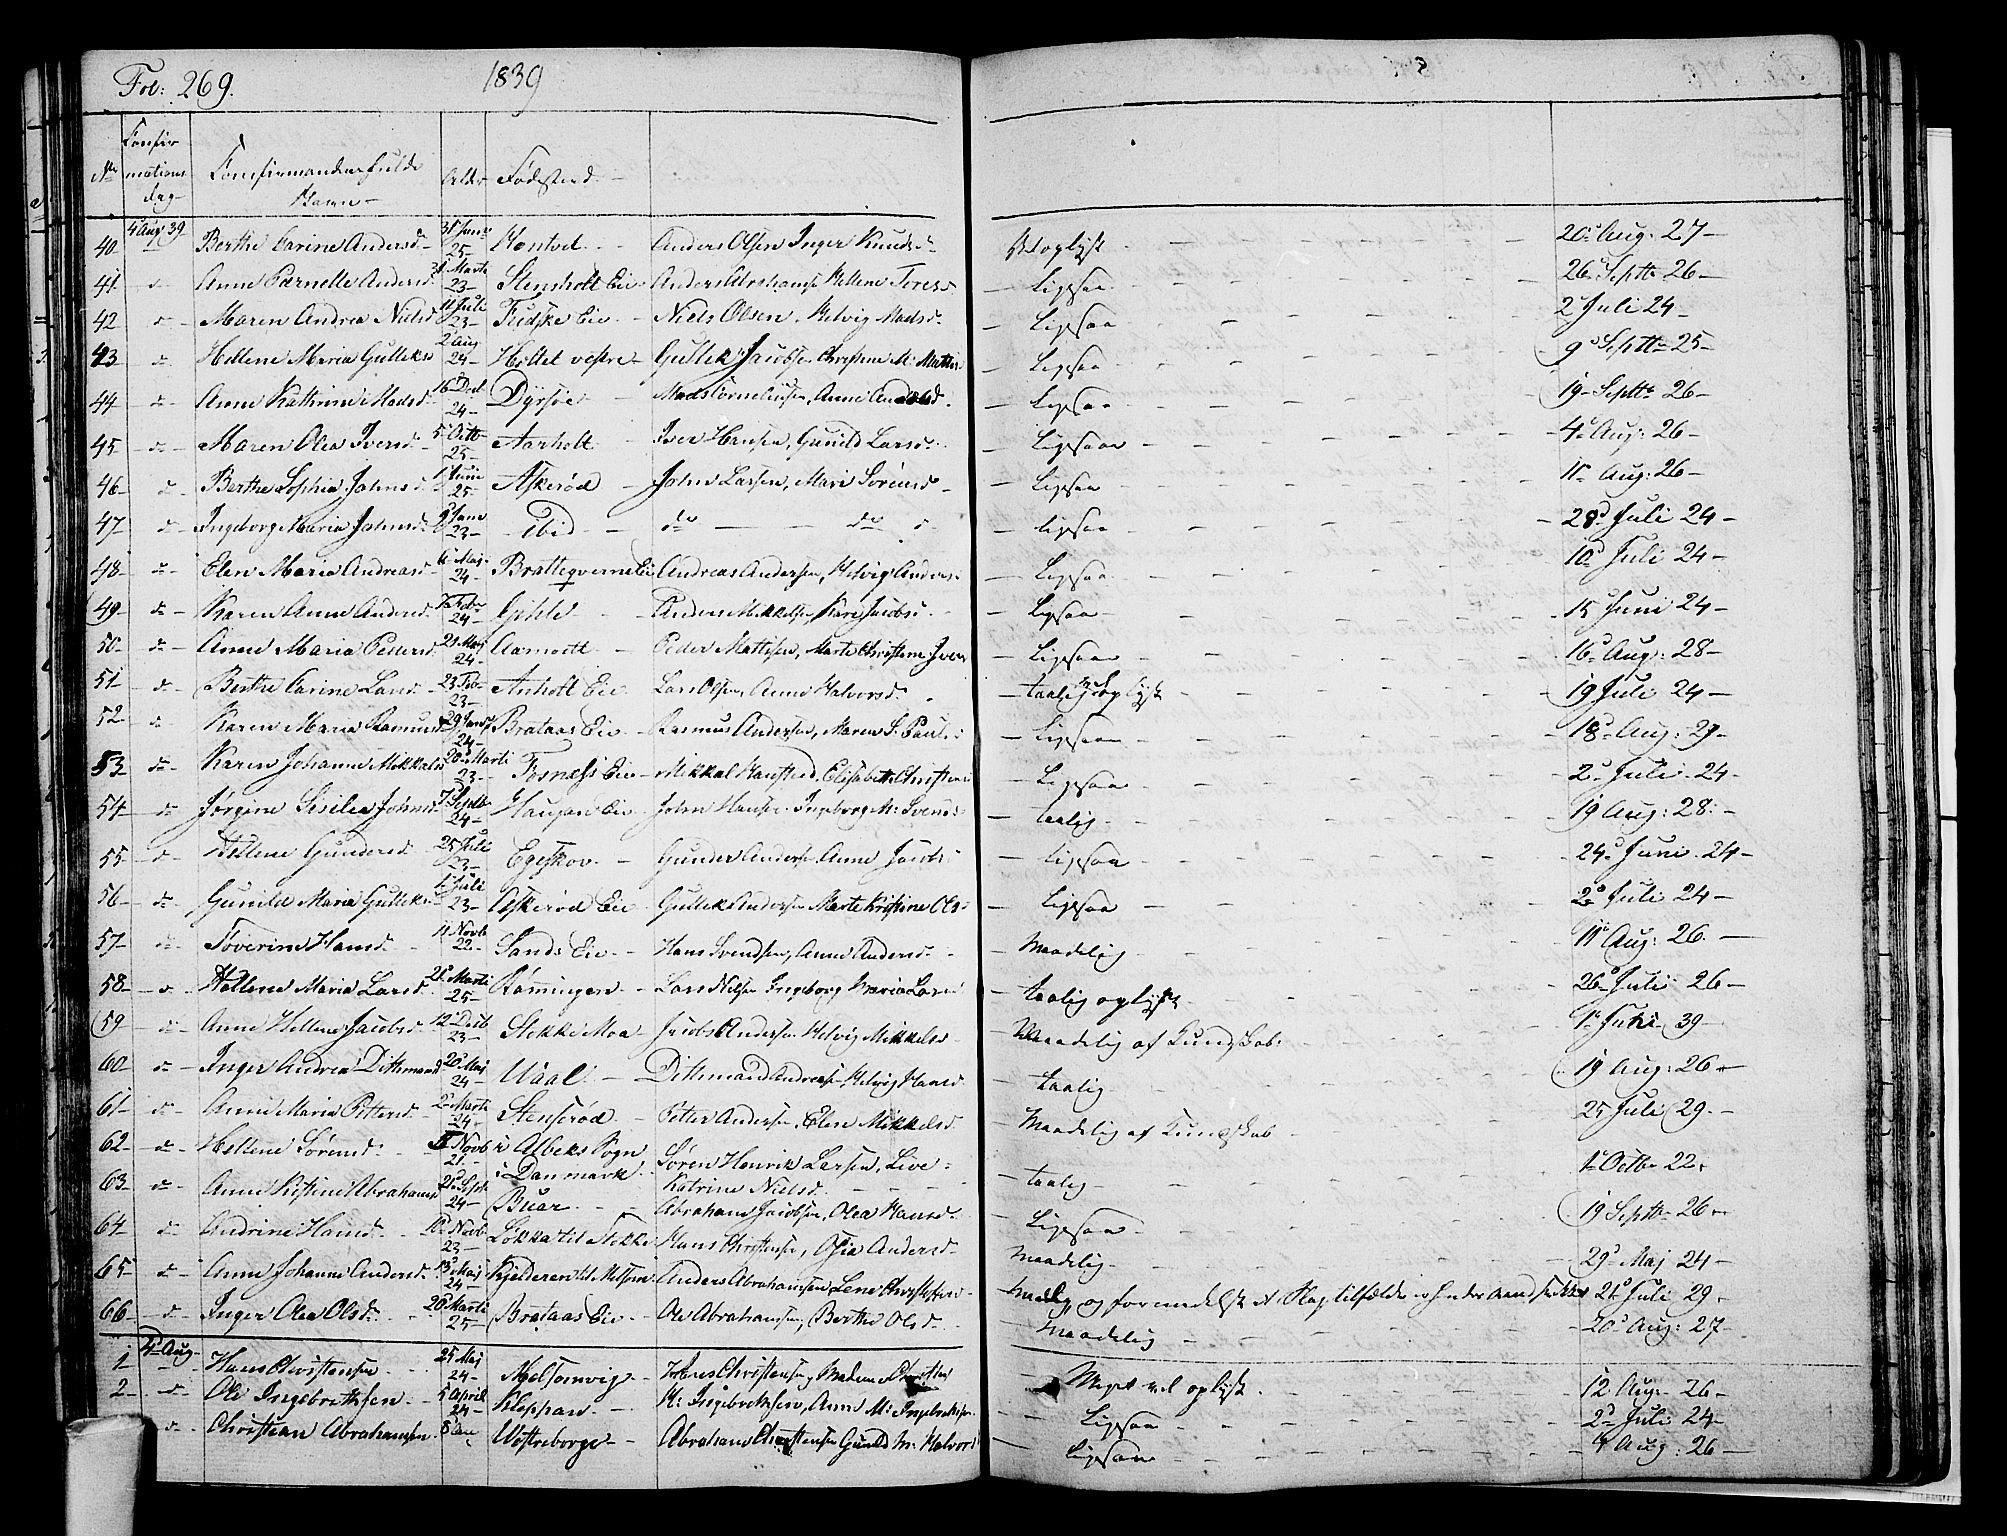 Fol: 269. 1839
No Confirmations dag Confirmandens fulde Navn Alder Fødested
40 4 Aug 39 Berthe Carine Andersd 31 Janr 25 Hontvet Anders Olsen Inger Knudsd Veloplyst 20 Aug: 27
41 do Anne Pernelle Andersd 31 Marts 23 Stensholt Eie Anders Abrahamsen Hellene Toresd Ligesaa 26 Septbr 26
42 do Maren Andrea Nielsd 11 Juli 23 Fudske Eie Niels Olsen, Helvig Madsd Ligesaa 2 Juli 24
43 do Hellene Maria Gulleksd 2 Aug 24 Holtet vestre Gullek Jacobsen Christine M: Mattis Ligesaa 9 Septbr 25
44 do Anne Kathrine Madsd 16 Decb 24 Dyrsøe Mads Corneliusen, Anne Andersd Ligesaa 19 Septbr 26
45 do Maren Olea Iversd 5 Octb 25 Aarholt Iver Hansen, Gunild Larsd Ligesaa 4 Aug: 26
46 do Berthe Sophia Johnsd 1 Juni 25 Askerød John Larsen, Mari Sørensd Ligesaa 11 Aug: 26
47 do Ingeborg Maria Johnsd 9 Janr 23 Ibid do do ligesaa 28 Juli 24
48 do Elen Maria Andreasd 6 Maj 24 Bratteqverne Eie Andreas Andersen, Helvig Anders Ligesaa 10 Juli 24
49 do Karen Anne Andersd Febr 24 Gihle Anders Mikkelsen Kari Jacobsd Ligesaa 15 Juni 24
50 do Anne Maria Pedersd 21 Maj 24 Aamodt Peder Mattisen, Marte Christine Ivers Ligesaa 16 Aug: 28
51 do Berthe Carine Larsd 23 Feb 23 Anholt Eie Lars Olsen, Anne Halvorsd taalig vel oplyst 19 Juli 24
52 do Karen Maria Rasmusd 29 Janr 24 Brataas Eie Rasmus Andersen, Maren S. Pauls Ligesaa 18 Aug: 27
53 do Karen Johanne Mikkelsd 20 Marti 23 Fosnæss Eie Mikkal Hansteed, Elisabeth Christens Ligesaa 2 Juli 24
54 do Jørgine Sisilia Johnsd 7 Septb 24 Haugan Eie John Hansen Ingeborg M: Svends taalig 19 Aug: 28
55 do Hellene Gundersd 25 Juli 23 Egeskov Gunder Andersen Anne Jacobs ligesaa 24 Juni 24
56 do Gunild Maria Gulleks 1 Juli 23 Askerød Eie Gullek Andersen Marte Kristine Ols Ligesaa 2 Juli 24
57 do Søverine Hansd 11 Novb 22 Sands Eie Hans Svendsen, Anne Andersd Maadelig 11 Aug: 26
58 do Hellene Maria Larsd 21 Marti 25 Rønningen Lars Nilsen Ingeborg Maria Lars taalig oplyst 26 Juli 26
59 do Anne Hellene Jacobsd 12 Decb 23 Stokke Moa Jacob Andersen Helvig Mikkels Maadelig af Kundskab 1 Juni 39
60 do Inger Andrea Dithmand 20 Maj 24 Unal Dithmand Andreasen Helvig Hansd taalig 19 Aug: 26
61 do Anne Maria Pettersd 2 Marti 24 Stensrød Peter Andersen, Elen Mikkelsd Maadelig af Kundskab 25 Juli 29
62 do Hellene Sørensd Novb 21 i Albeks Sogn i Danmark Søren Henrik Larsen, Live Katrine Nielsd taalig 1 Octbr 22
63 do Anne Kristine Abrahamsd 21 Sept 24 Buar Abraham Jacobsen, Olea Hansd Ligesaa 19 Septbr 26
64 do Andrine Hansd Novb 23 Løkka til Stokke Hans Christensen, Andersd maadelig 29 Maj 24
65 do Anne Johanne Andersd 13 Maj 24 Kjelderen til Melsom Anders Abrahamsen Lene Christens og formedelst Slagtilfælde 21 Juli 29
66 do Inger Olea Olsd 20 Marti 25 Brataas Eie Ole Abrahamsen, Berthe Olsd maadelig 20 Aug: 27
1 4 Aug Hans Christensen 25 Maj 24 Melsomvig Christensen Meget vel oplyst 12 Aug 26
2 do Ole Ingebrethsen 5 April 24 Kloppan H: Ingebrethsen, Anne M: Ingebrethsen Ligesaa 2 Juli 24
do Christian Abrahamsen 8 Wøstreborge Abraham Christensen Gunild M: Halvors Ligesaa 4 Aug: 26